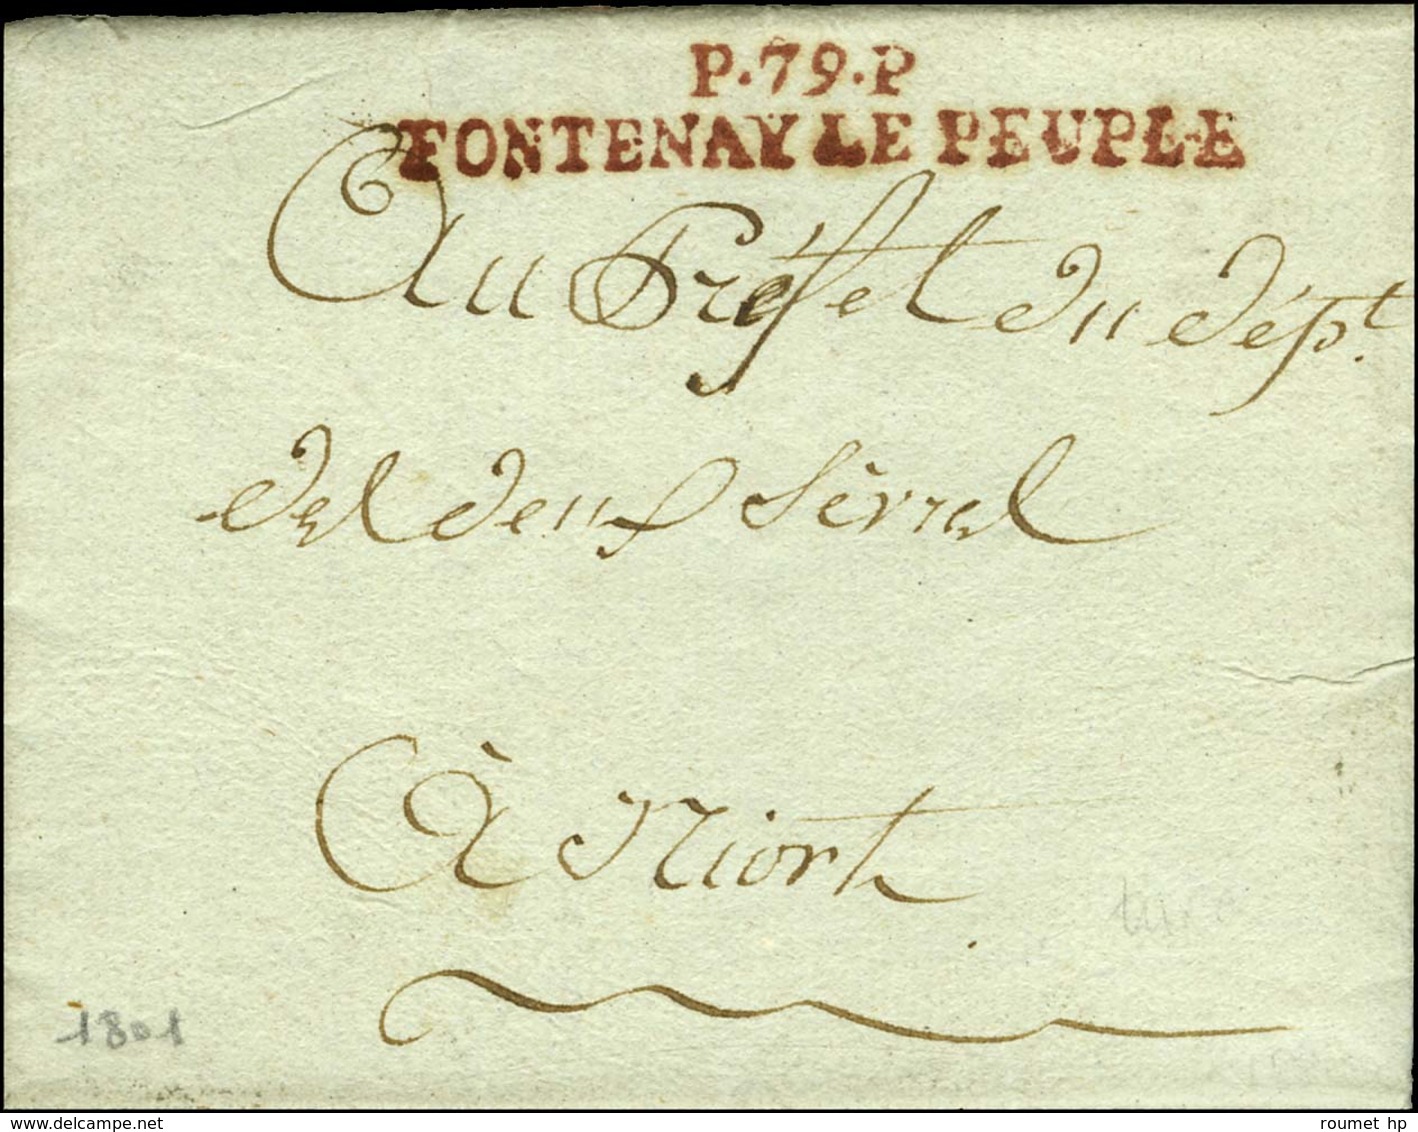 P.79.P
FONTENAY LE PEUPLE
Au Préfet du dépt.
des deux Sèvres
À Niort
1801
delcampe.net
roumet hp